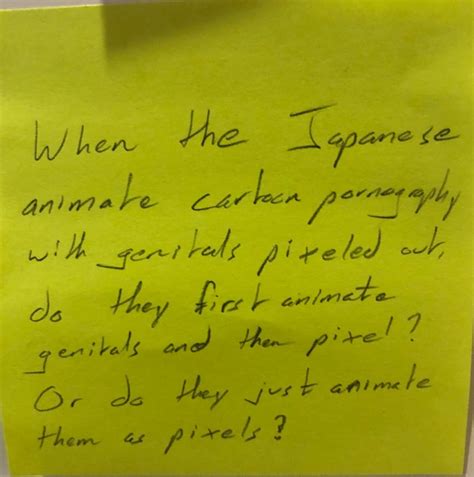 When the Japanese
animate cartoon pornography
with genitals pixeled out,
do they first animate
genitals and then pixel?
Or do they just animate
them as pixels?